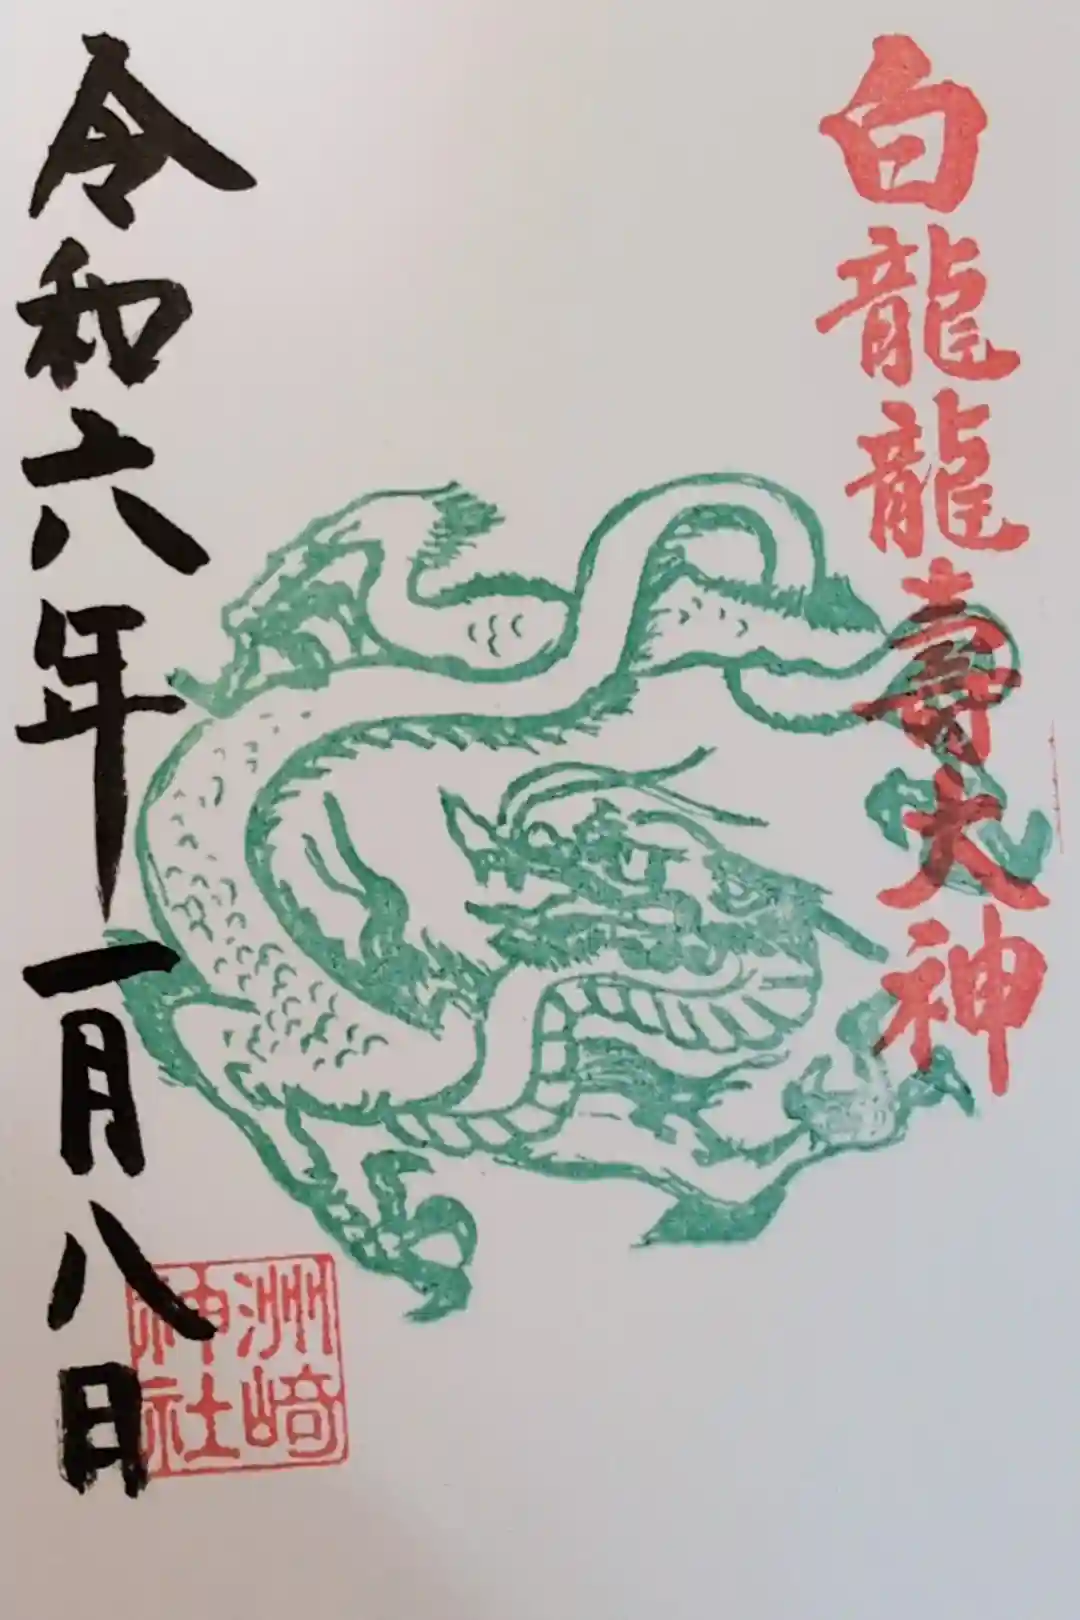 白龍龍壽大神
令和六年一月八日
洲崎
神社